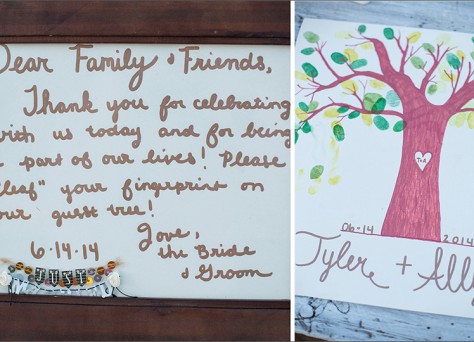 Dear Family & Friends,
Thank you for celebrating
with us today and for being
a part of our lives! Please
"leaf" your fingerprint on
our guest tree!
Love,
the Bride
& Groom
6·14·14
JUST
T+A
06·14
2014
Tyler + All